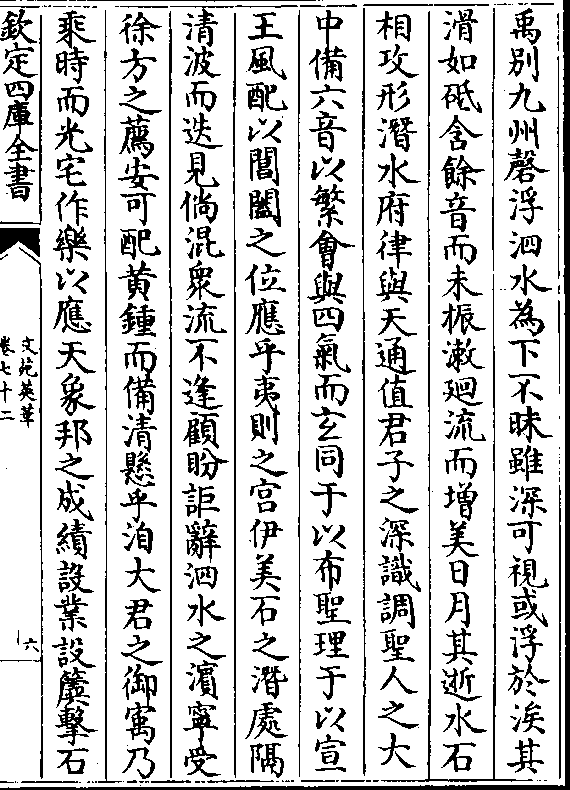 禹别九州磬浮泗水為下不昧雖深可視或浮於涘其
滑如砥含餘音而未振漱廻流而增美日月其逝水石
相攻形潛水府律與天通值君子之深識調聖人之大
中備六音以繁會與四氣而玄同于以布聖理于以宣
王風配以閶闔之位應乎夷則之宮伊美石之潛處隔
清波而迭見倘混衆流不逢顧盼詎辭泗水之濵寧受
徐方之薦安可配黄鍾而備清懸乎洎大君之御㝢乃
乘時而光宅作樂以應天象邦之成績設業設簴擊石
欽定四庫全書
文苑英華
卷七十二
六